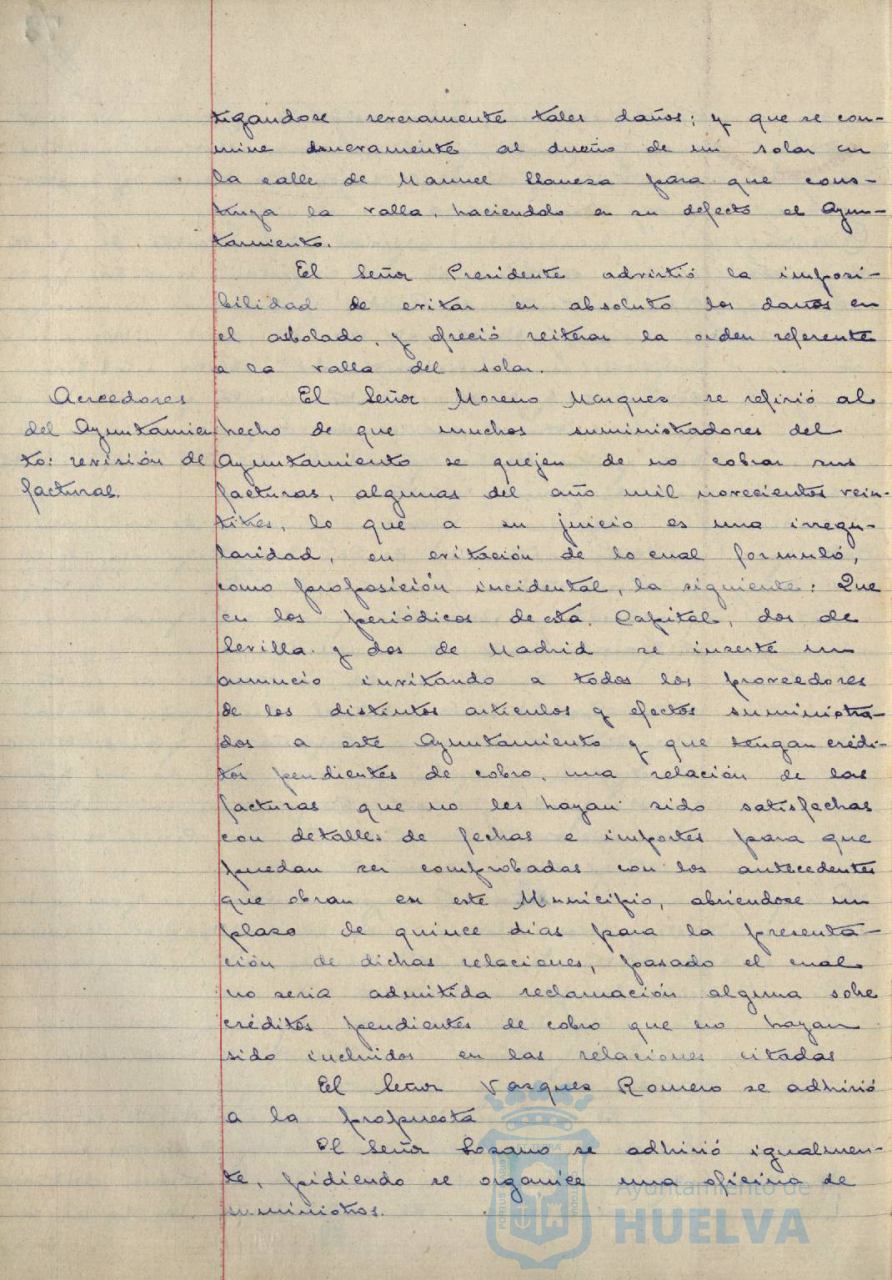 tigandose severamente tales daños; y que se con-
mine severamente al dueño de un solar en
la calle de Manuel Llaneza para que cons-
truya la valla, haciendolo en su defecto el Ayun-
tamiento.
El Señor Presidente advirtió la imposi-
bilidad de evitar en absoluto los daños en
el arbolado, y ofreció reiterar la orden referente
a la valla del solar.
Acreedores
del Ayuntamien
to: revisión de
facturas.
El Señor Moreno Marquez se refirió al
hecho de que muchos suministradores del
Ayuntamiento se quejen de no cobrar sus
facturas, algunas del año mil novecientos vein-
titres, lo que a su juicio es una irregu-
laridad, en evitación de lo cual formuló,
como proposición incidental, la siguiente: Que
en los periódicos de esta Capital, dos de
Sevilla y dos de Madrid se inserte un
anuncio invitando a todos los proveedores
de los distintos articulos y efectos suministra-
dos a este Ayuntamiento y que tengan crédi-
tos pendientes de cobro, una relación de las
facturas que no les hayan sido satisfechas
con detalles de fechas e importes para que
puedan ser comprobadas con los antecedentes
que obran en este Municipio, abriendose un
plazo de quince dias para la presenta-
ción de dichas relaciones, pasado el cual
no seria admitida reclamación alguna sobre
créditos pendientes de cobro que no hayan
sido incluidos en las relaciones citadas
El Señor Vazquez Romero se adhirió
a la propuesta
El Señor Lozano se adhirió igualmen-
te, pidiendo se organice una oficina de
suministros.
Ayuntamiento de
HUELVA